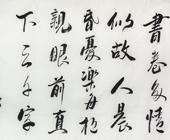 書卷多情
似故人晨
昏憂樂每相
親眼前直
下三千字